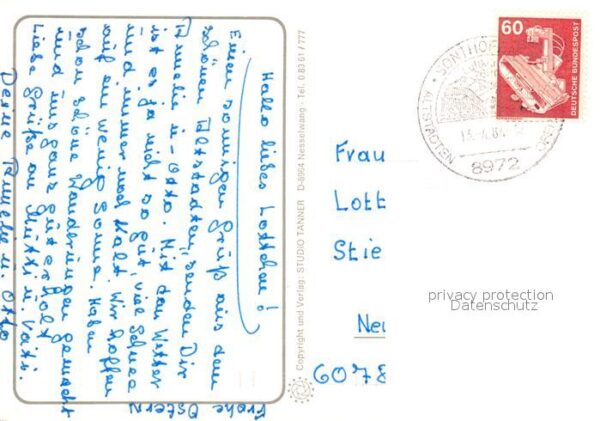 Hallo liebes Lottchen!
Einen sonnigen Grüß aus dem
schönen Altstädten, senden Dir
Amelie u - Otto. Mit dem Wetter
ist es ja nicht so gut, viel Schnee
und immer noch kalt. Wir hoffen
auf ein wenig Sonne. Haben
schon schöne Wanderungen gemacht
und uns ganz gut erholt
Liebe Grüße an Mutti u. Vati.
Deine Amelie u. Otto
Frohe Ostern
Copyright und Verlag: STUDIO TANNER D-8964 Nesselwang - Tel. 0 83 61 / 777
60
DEUTSCHE BUNDESPOST
SONTHOFEN
ALTSTÄDTEN
8972
Frau
Lott
Stie
Neu
6078
privacy protection
Datenschutz